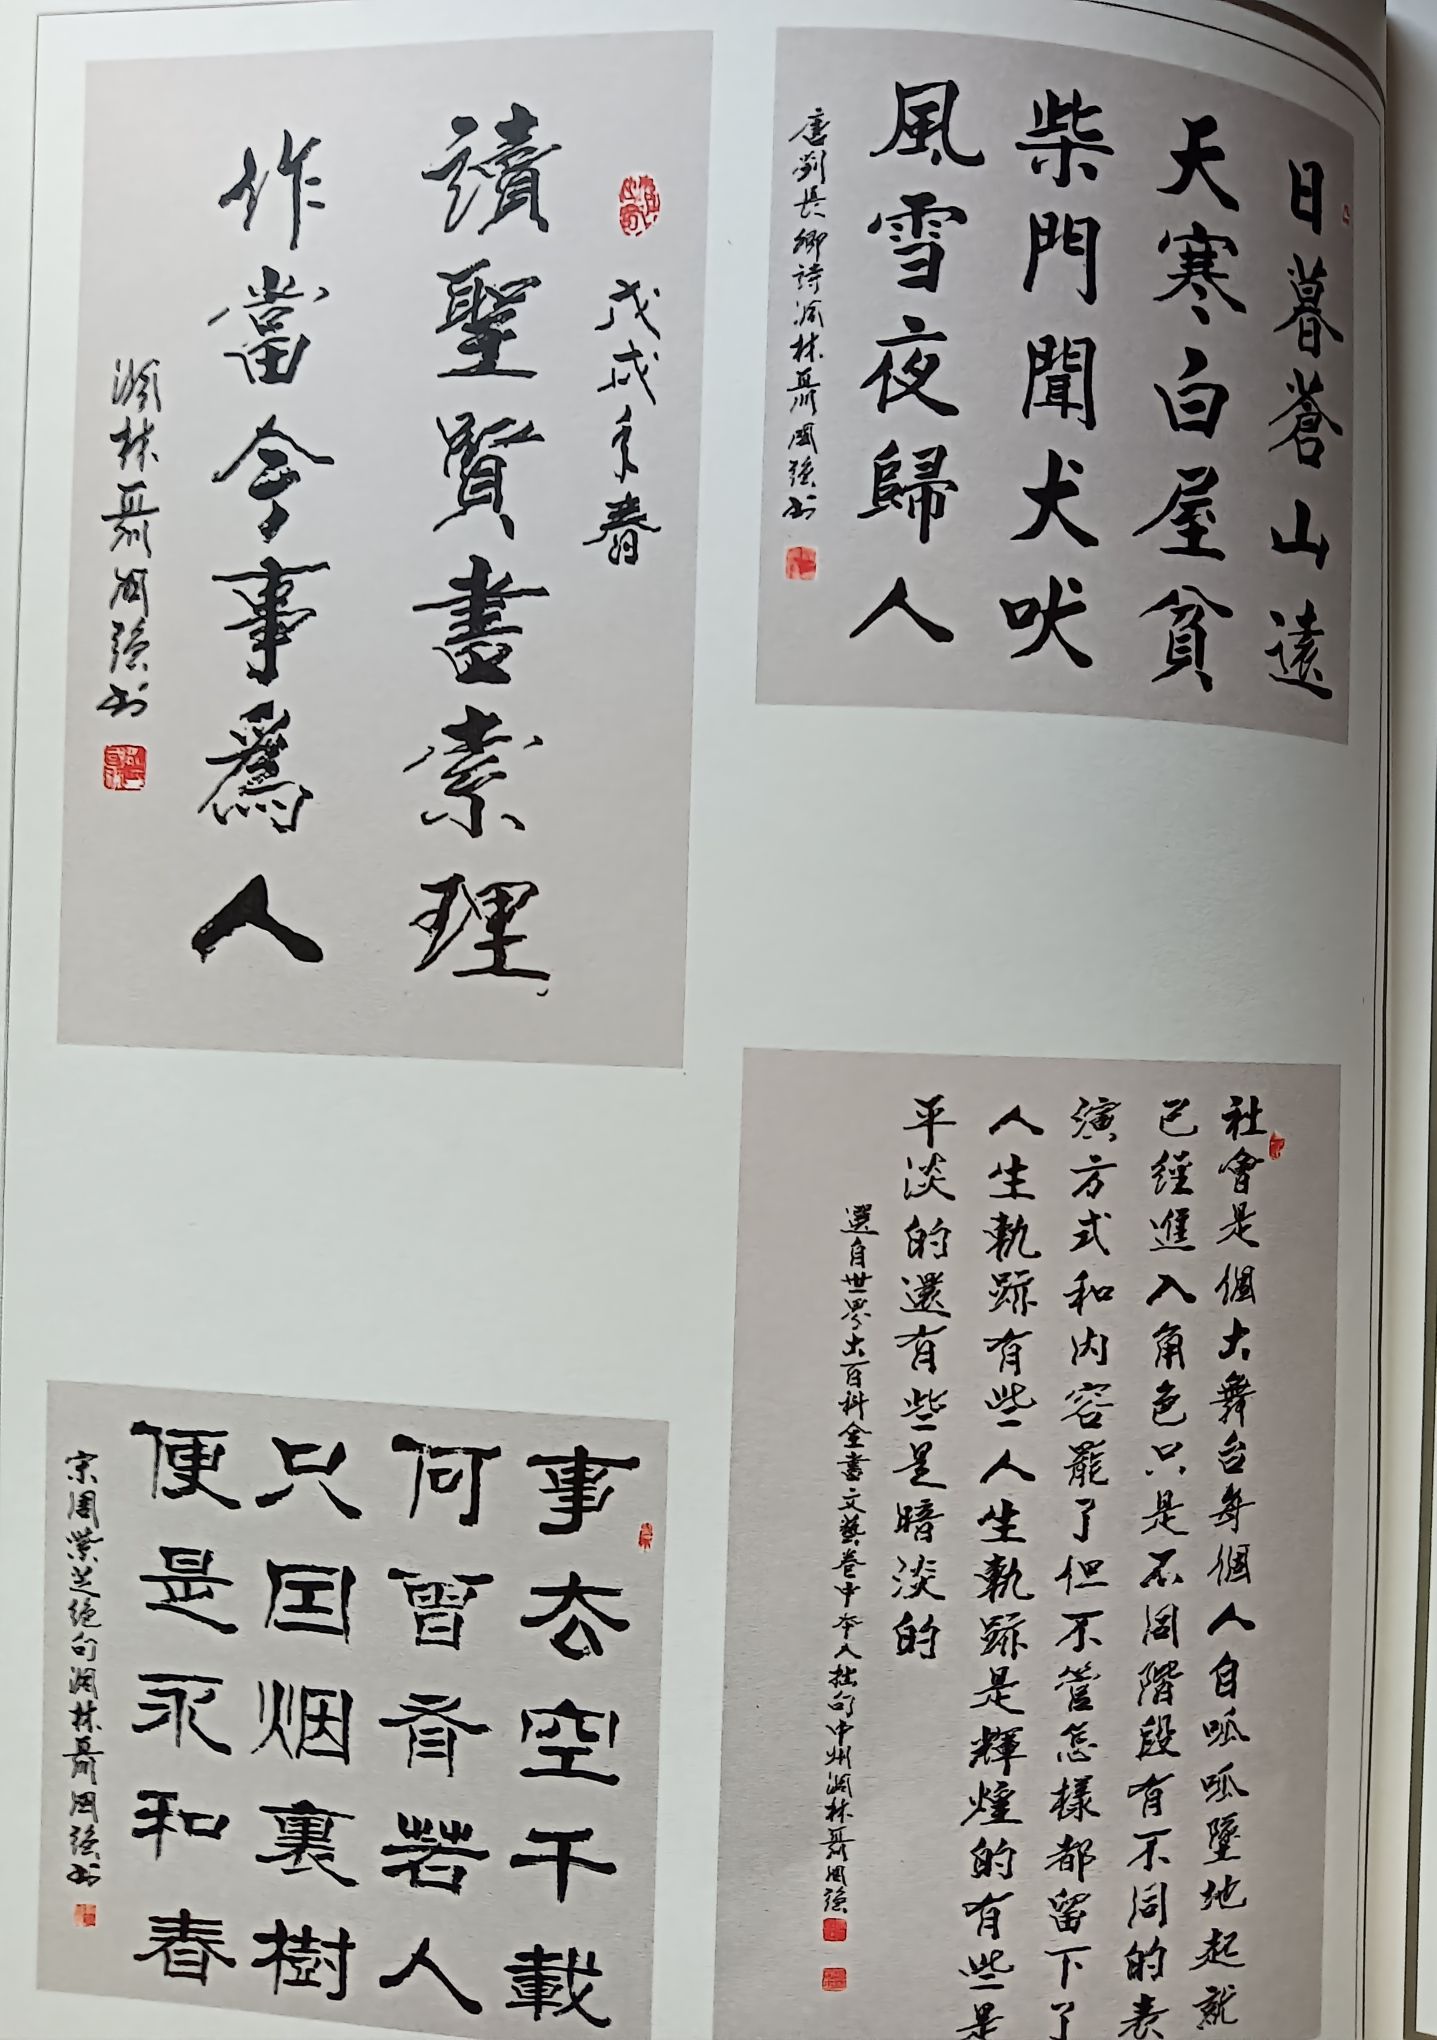 日暮蒼山遠
天寒白屋貧
柴門聞犬吠
風雪夜歸人
唐劉長卿詩澗林聶國強書
戊戌年春
讀聖賢書索理
作當今事為人
澗林聶國強書
社會是個大舞台每個人自呱呱墜地起就
已經進入角色只是不同階段有不同的表
演方式和内容罷了但不管怎樣都留下了
人生軌跡有些人生軌跡是輝煌的有些是
平淡的還有些是暗淡的
選自世界大百科全書文藝卷中本人拙句中州澗林聶國強
事去空千載
何曾有若人
只因烟裏樹
便是永和春
宋周紫芝絶句澗林聶國強書